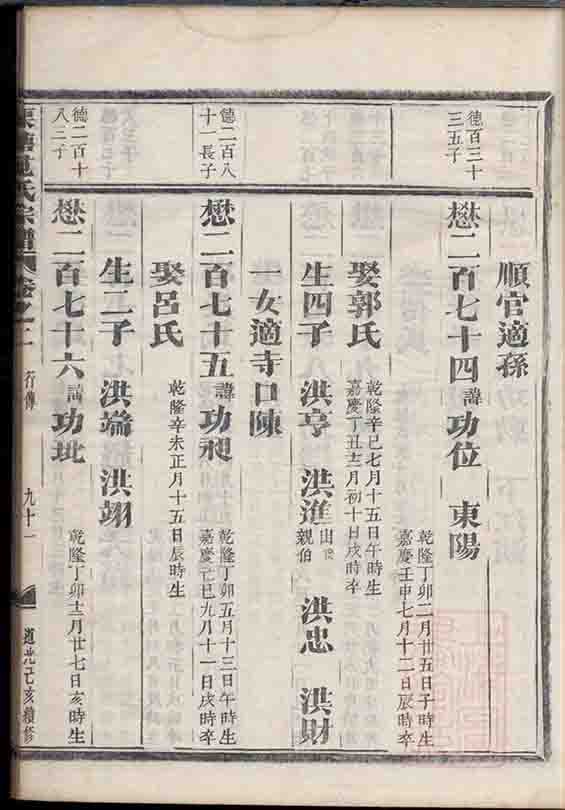 順官適孫
德百三十
三五子
懋二百七十四 諱 功位 東陽
乾隆丁卯二月廿五日子時生
嘉慶壬申七月十二日辰時卒
娶郭氏
乾隆辛巳七月十五日午時生
嘉慶丁丑十二月初十日戌時卒
生四子 洪亨 洪進
親伯
洪忠 洪財
一女適寺口陳
德二百八
十一長子
懋二百七十五 諱 功昶
乾隆丁卯五月十三日午時生
嘉慶己巳九月十一日戌時卒
娶呂氏
乾隆辛未正月十五日辰時生
生二子 洪端 洪翊
德二百十
八三子
懋二百七十六 諱 功玭
乾隆丁卯十二月廿七日亥時生
氏宗譜 卷之二 行傳 九十一 道光己亥續修